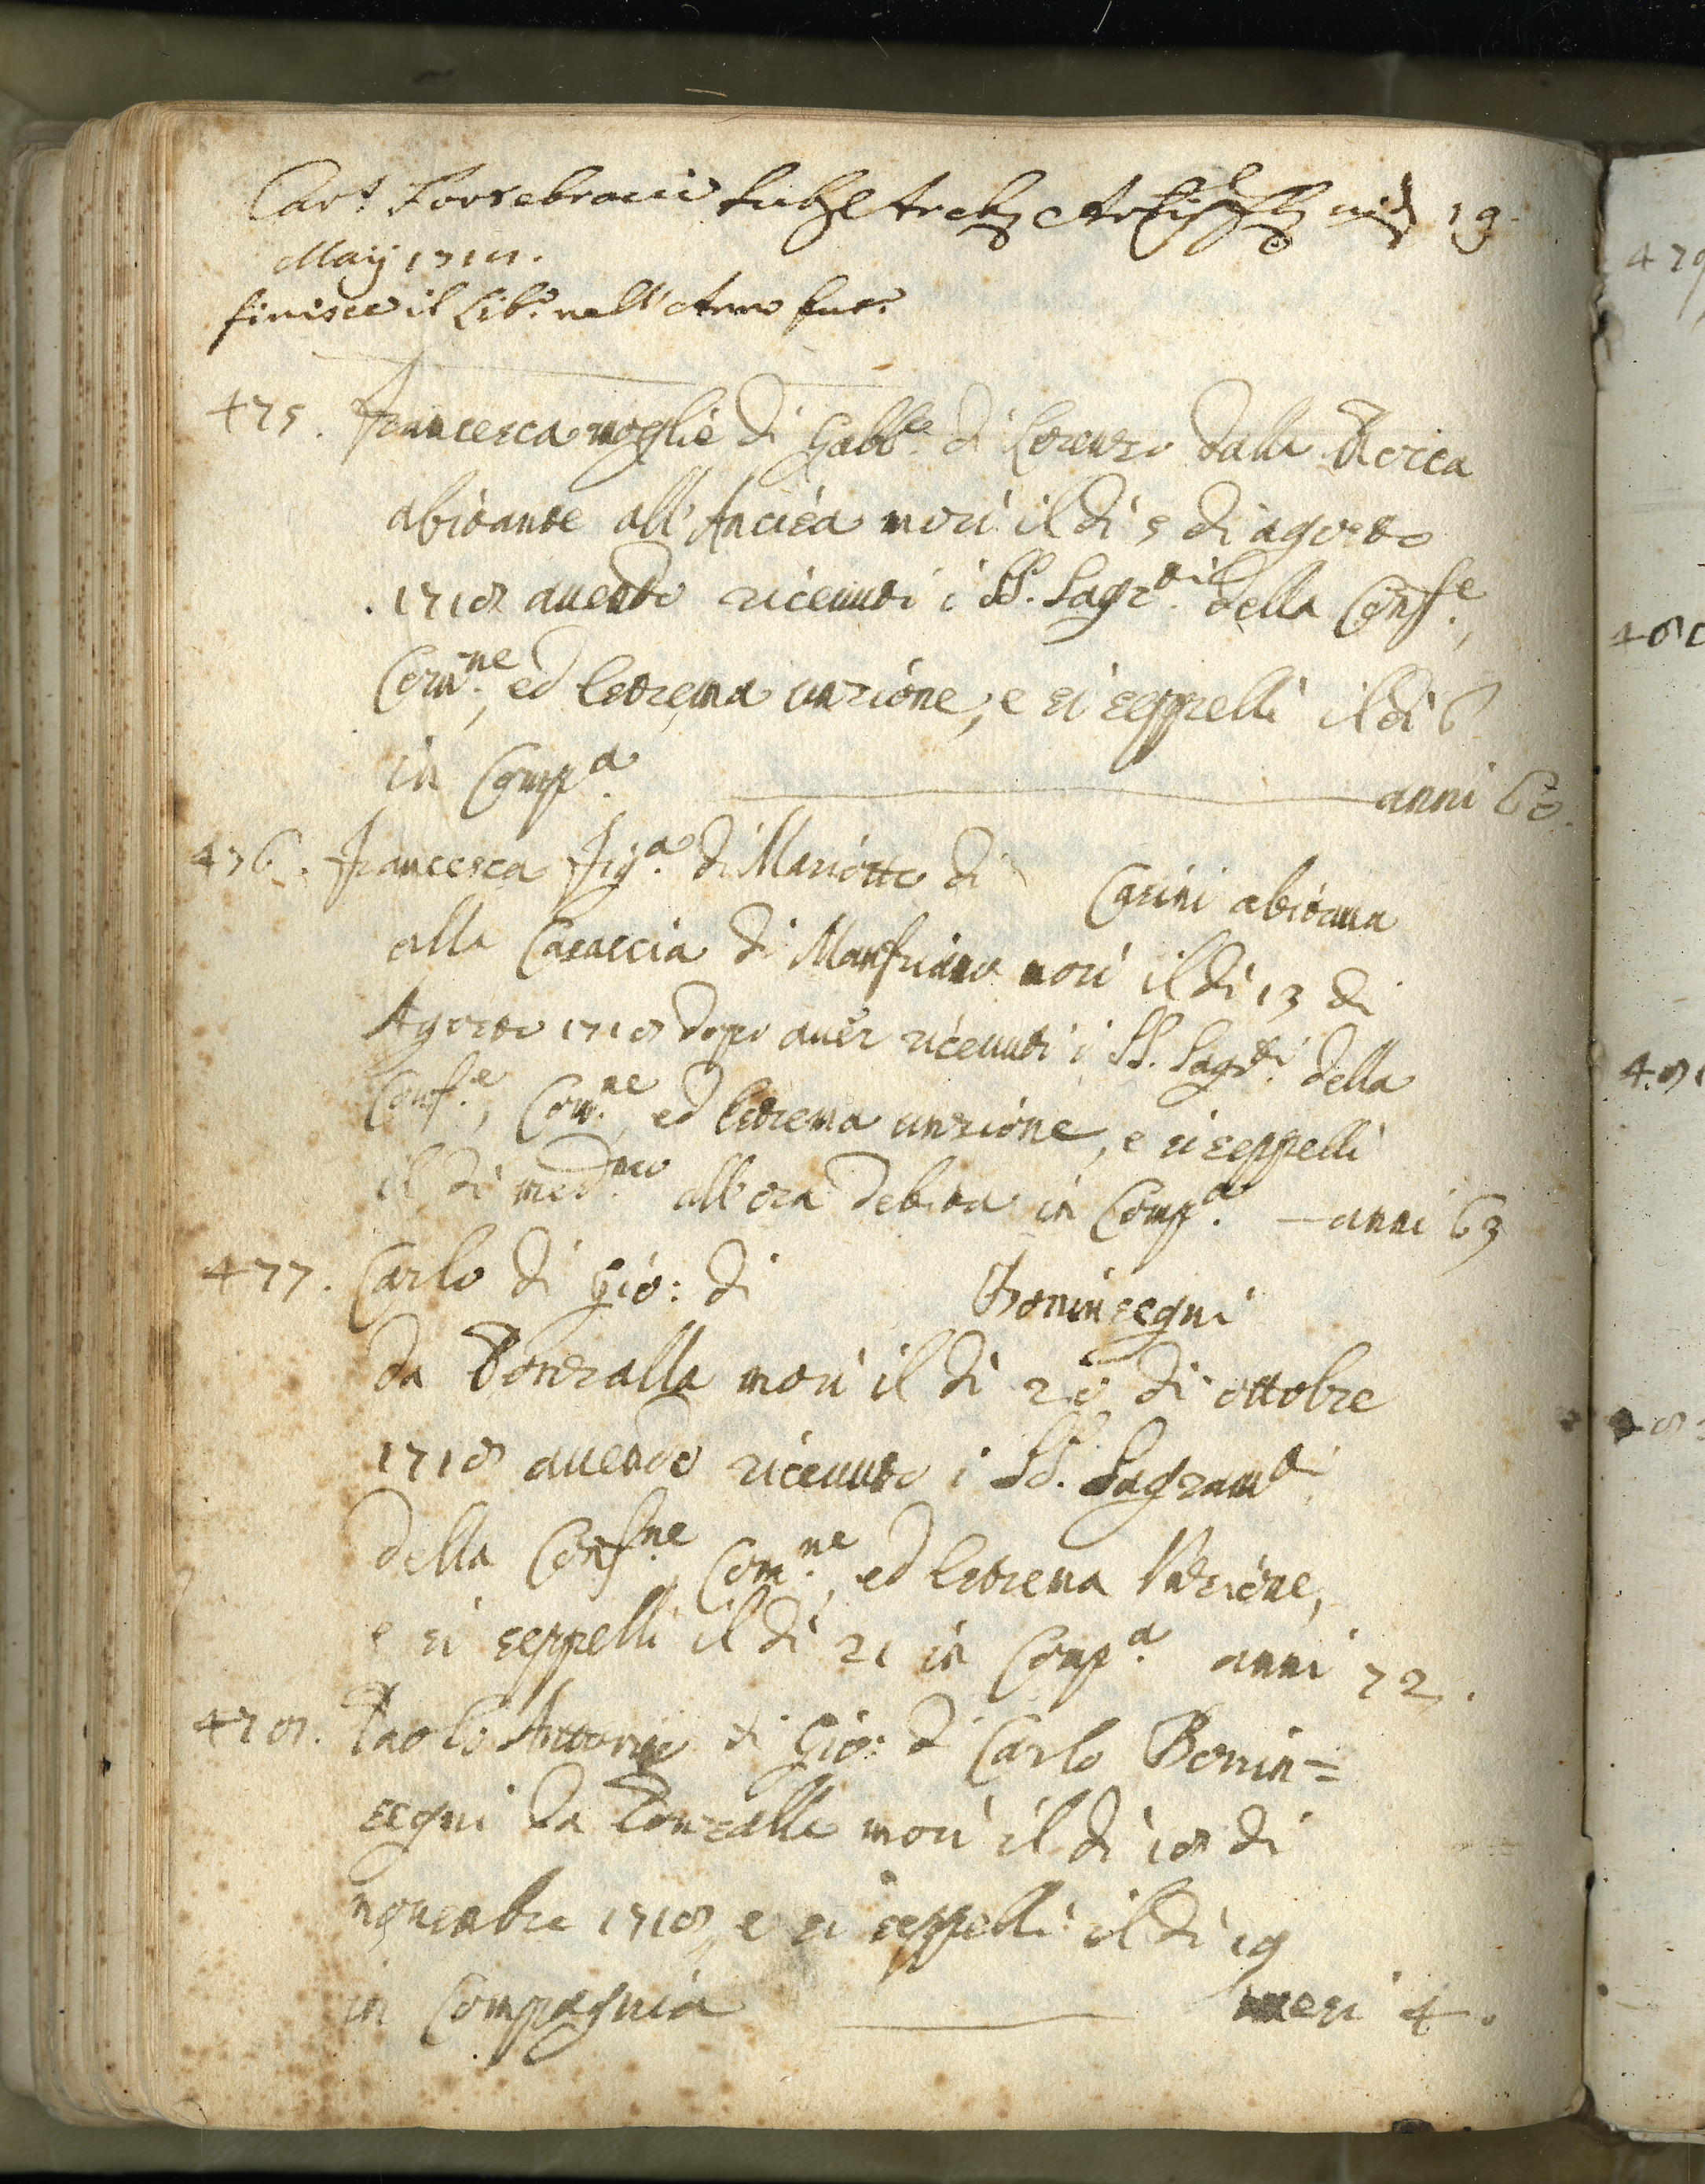 Car.s Fortebracci
19
Maij 1718.
finisce il Lib.o nell' Anno
475. Francesca moglie di Gabb.e di Lorenzo dalla Rocca
abitante all' Ancisa morì il dì 5 di agosto
1718 auendo riceuuti i SS. Sagr.ti della Conf.e,
Com.ne, ed Estrema unzione, e si seppellì il dì 6
in Comp.a anni 60.
476. Francesca fig.a di Mariotto di Casini abitaua
alla Casaccia di Monfriano morì il dì 13 di
Agosto 1718 dopo auer riceuuti i SS. Sag.ti della
Conf.e, Com.ne, ed Estrema unzione, e si seppellì
il dì med.mo all' ora debita in Comp.a anni 63
477. Carlo di Gio: di Boninsegni
da Ponzalla morì il dì 20 di ottobre
1718 auendo riceuuto i SS. Sagram.ti
della Conf.ne, Com.ne, ed Estrema Unzione,
e si seppellì il dì 21 in Comp.a anni 72.
478. Paolo Antonio di Gio: di Carlo Bonin=
segni da Ponzalla morì il dì 18 di
nouembre 1718, e si seppellì il dì 19
in Compagnia mesi 4.
479
480